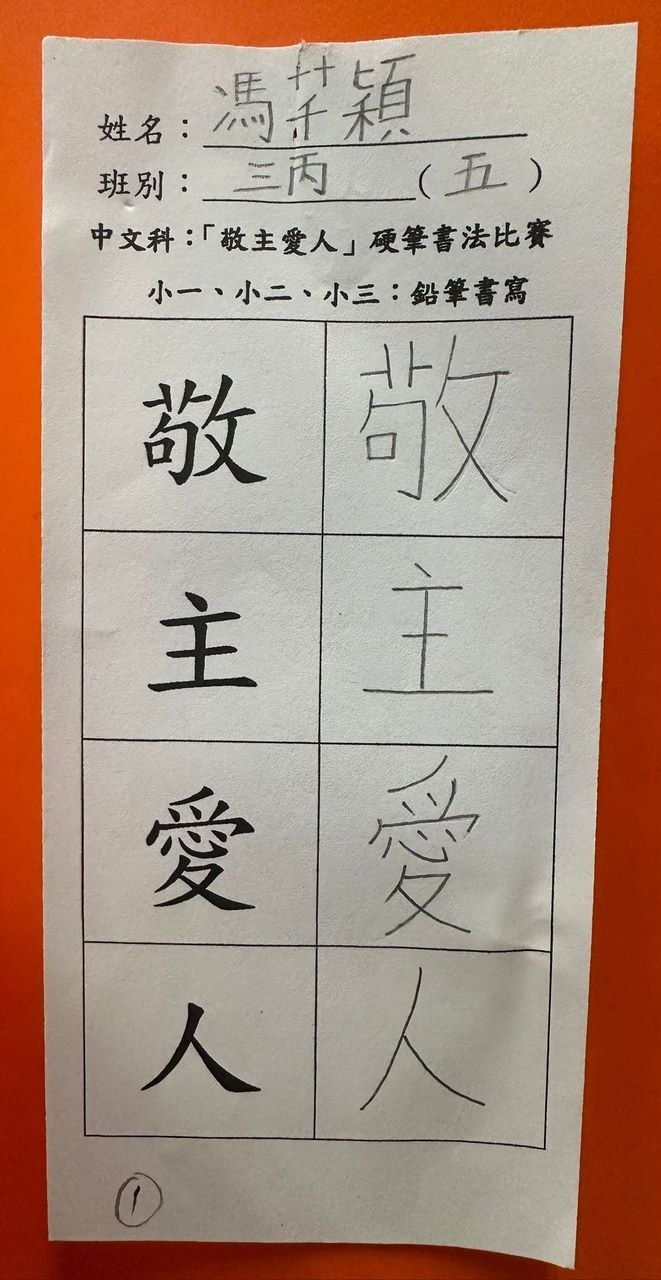 姓名：馮芊穎
班別：三丙（五）
中文科：「敬主愛人」硬筆書法比賽
小一、小二、小三：鉛筆書寫
敬 敬
主 主
愛 愛
人 人
1